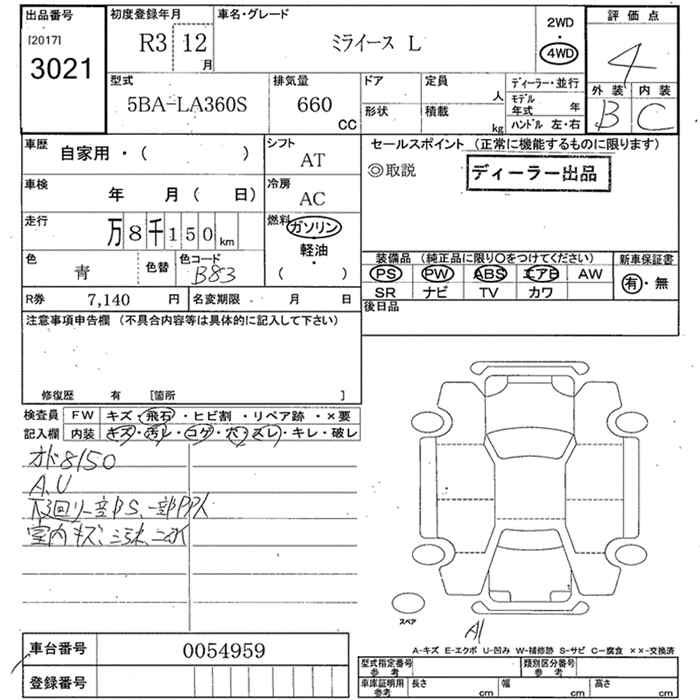 出品番号
[2017]
3021
初度登録年月
R3 12月
車名・グレード
ミライース L
2WD
・
4WD
評価点
4
外装 内装
B C
型式
5BA-LA360S
排気量
660 CC
ドア
形状
定員 人
積載 kg
ディーラー・並行
モデル年式 年
ハンドル 左・右
車歴
自家用・( )
シフト
AT
車検
年 月 ( 日)
冷房
AC
走行
万8千150km
燃料
ガソリン
・
軽油
・
( )
色
青
色替
色コード
B83
R券 7,140 円
名変期限 月 日
セールスポイント (正常に機能するものに限ります)
◎取説
ディーラー出品
装備品 (純正品に限り〇をつけてください)
PS PW ABS エアB AW
SR ナビ TV カワ
新車保証書
有・無
後日品
注意事項申告欄 (不具合内容等は具体的に記入して下さい)
修復歴 有 [箇所 ]
検査員記入欄
FW キズ・飛石・ヒビ割・リペア跡・×要
内装 キズ・汚レ・コゲ・穴・ズレ・キレ・破レ
オド8150
A,U
室内キズ、
スペア
A1
A-キズ E-エクボ U-凹み W-補修跡 S-サビ C-腐食 ××-交換済
車台番号 0054959
登録番号
型式指定番号 参考
類別区分番号 参考
車庫証明用 参考
長さ cm
幅 cm
高さ cm